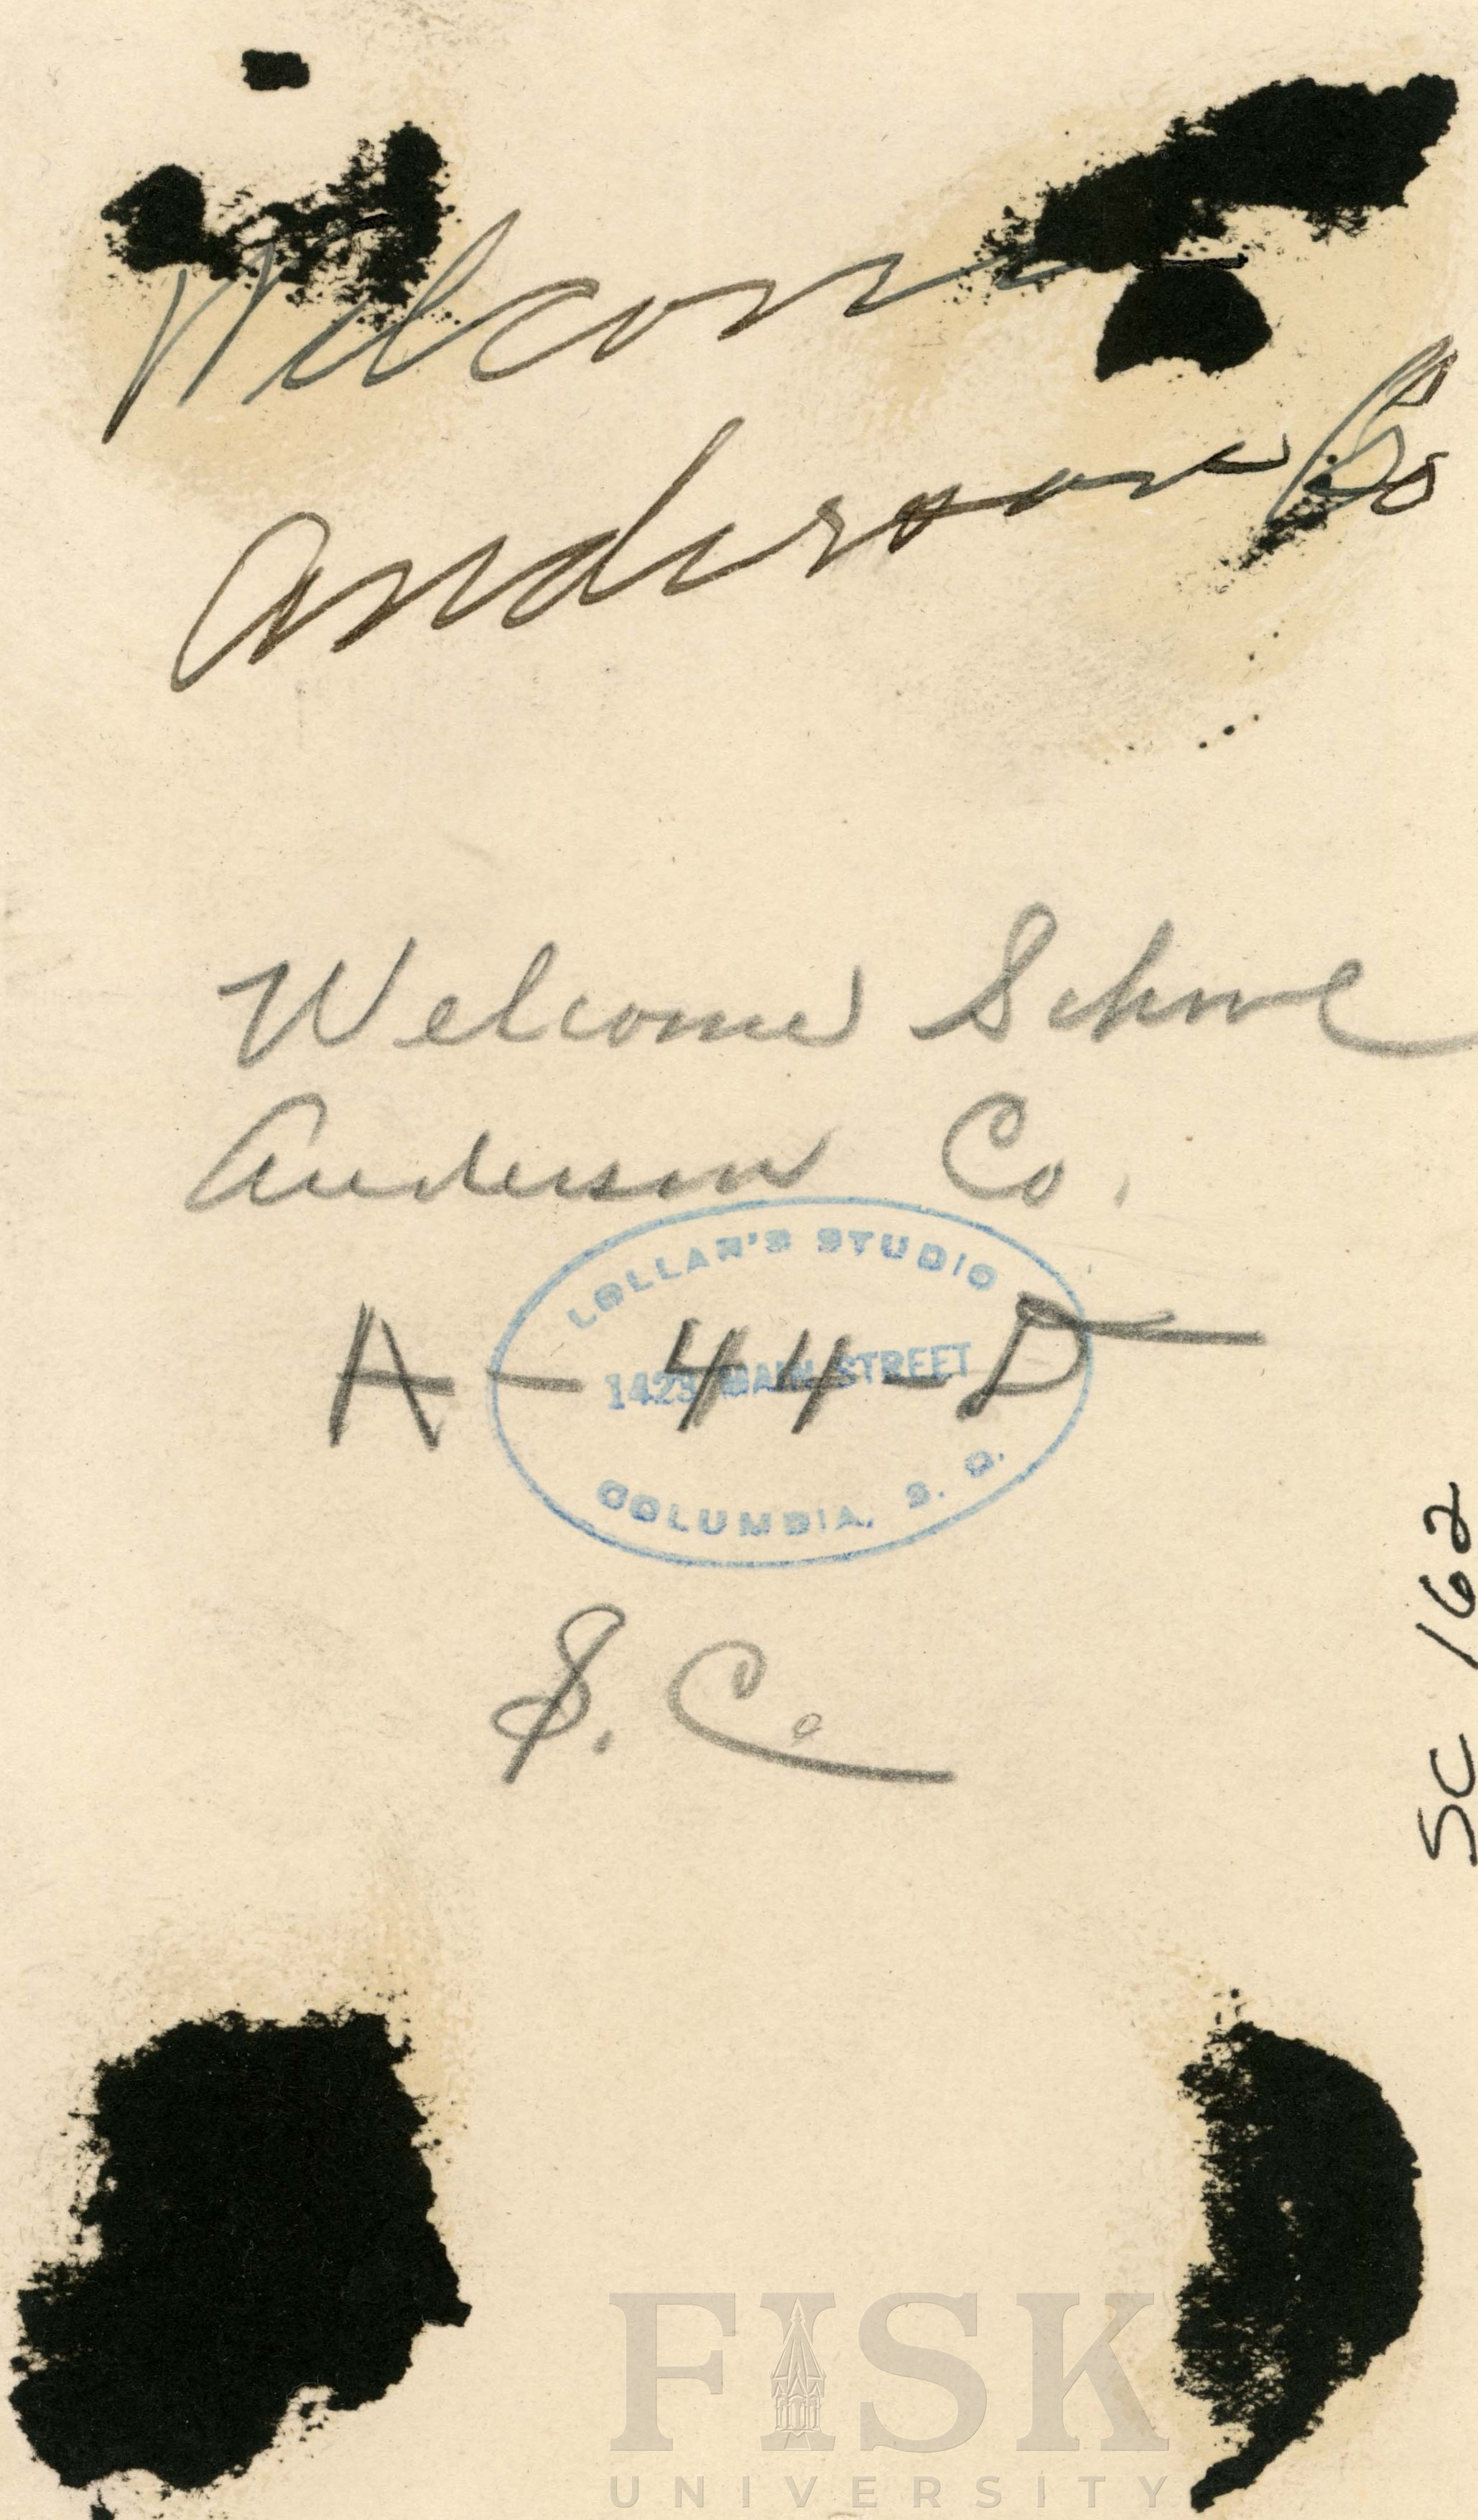 Welcome
Anderson Co
Welcome School
Anderson Co.
LOLLAR'S STUDIO
A-44-D
1423 MAIN STREET
COLUMBIA, S. C.
S. C.
SC 162
FISK
UNIVERSITY